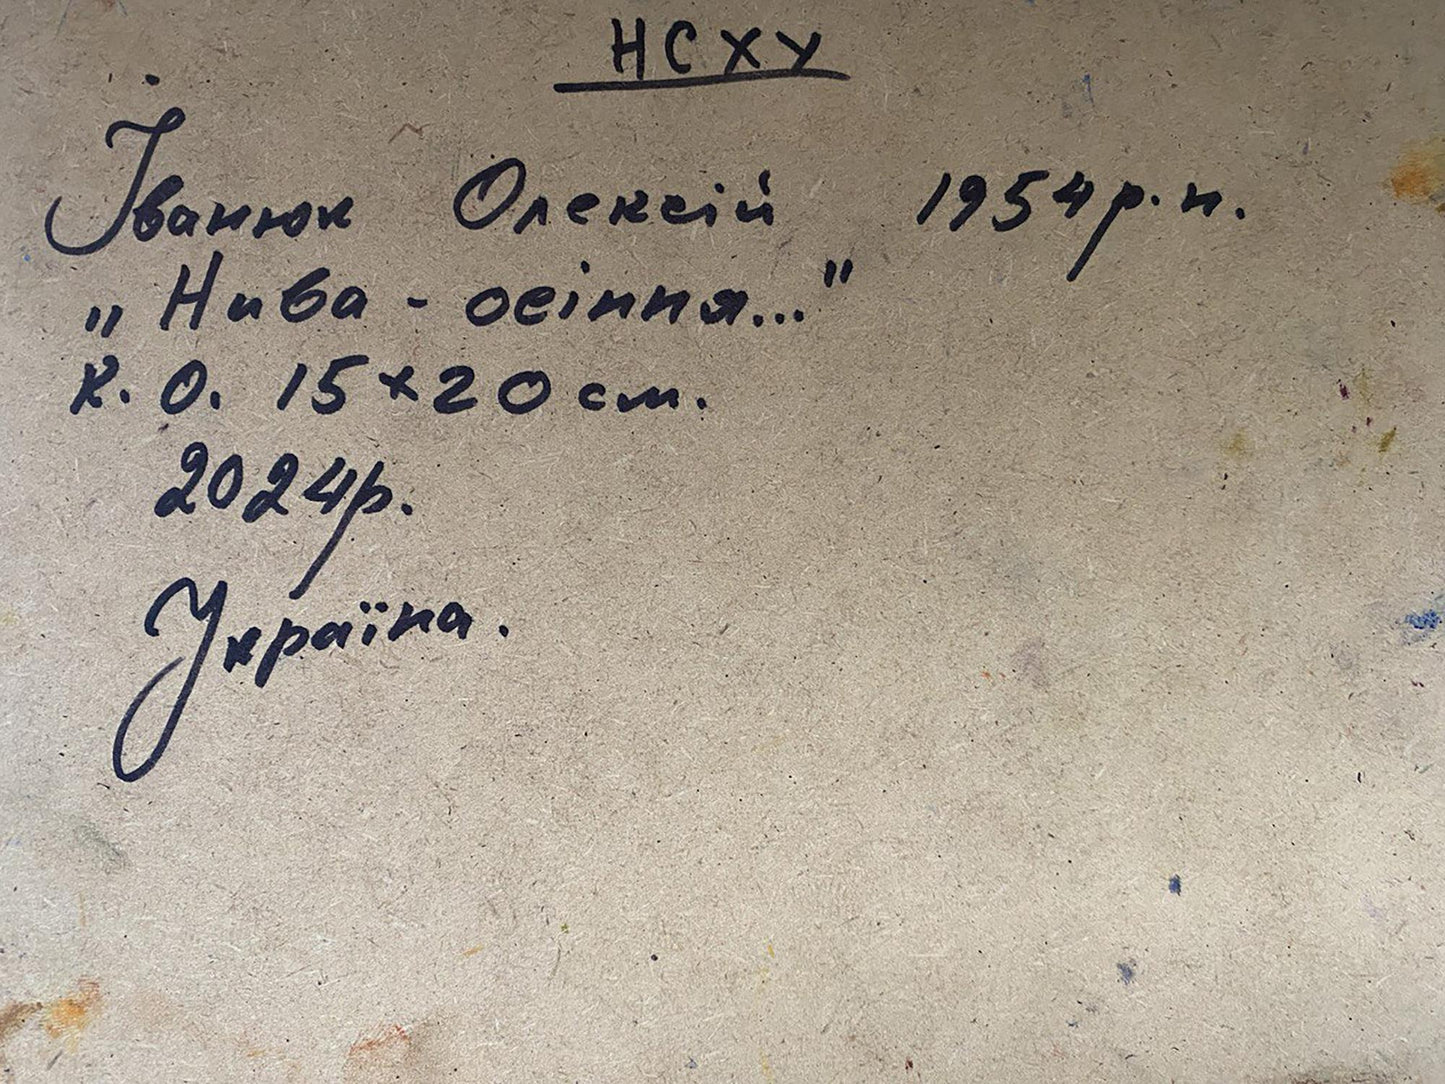 НСХУ
Іванюк Олексій 1954 р.н.
„Нива - осіння..."
К.О. 15×20 см.
2024р.
Україна.